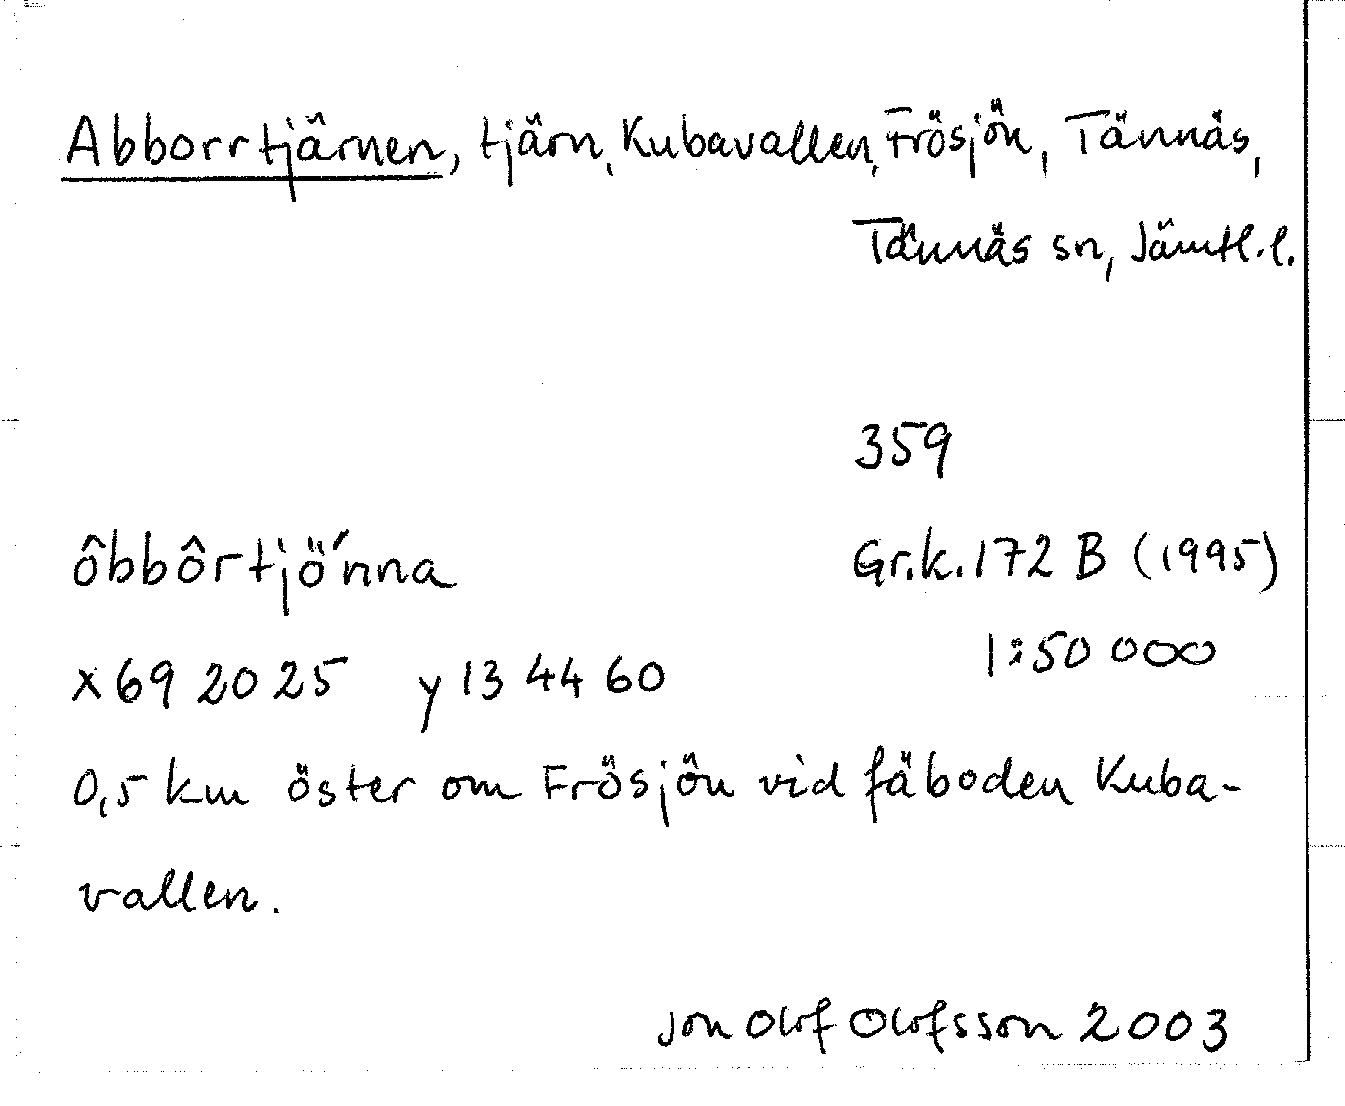 Abborrtjärnen, tjärn, Kubavallen, Frösjön, Tännäs,
Tännäs sn, Jämtl.l.
359
ôbbôrtjö´nna
Gr.k. 172 B (1995)
1:50 000
x 69 20 25 y 13 44 60
0,5 km öster om Frösjön vid fäboden Kuba-
vallen.
Jon Olof Olofsson 2003